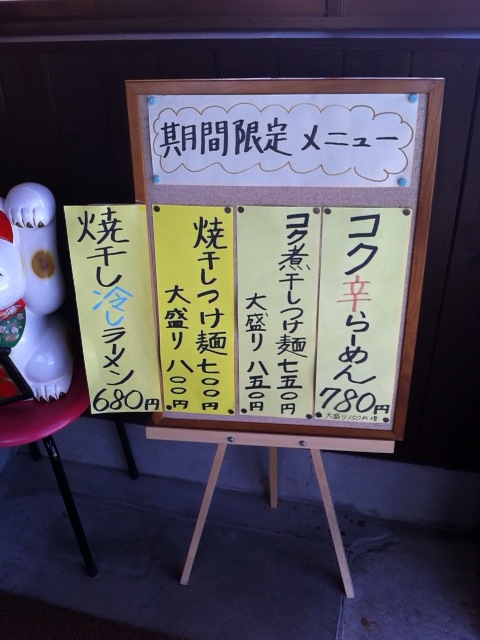 期間限定 メニュー
コク辛らーめん
780円
大盛り150円増
コク煮干しつけ麺 七五〇円
大盛り 八五〇円
焼干しつけ麺 七〇〇円
大盛り 八〇〇円
焼干し冷しラーメン
680円